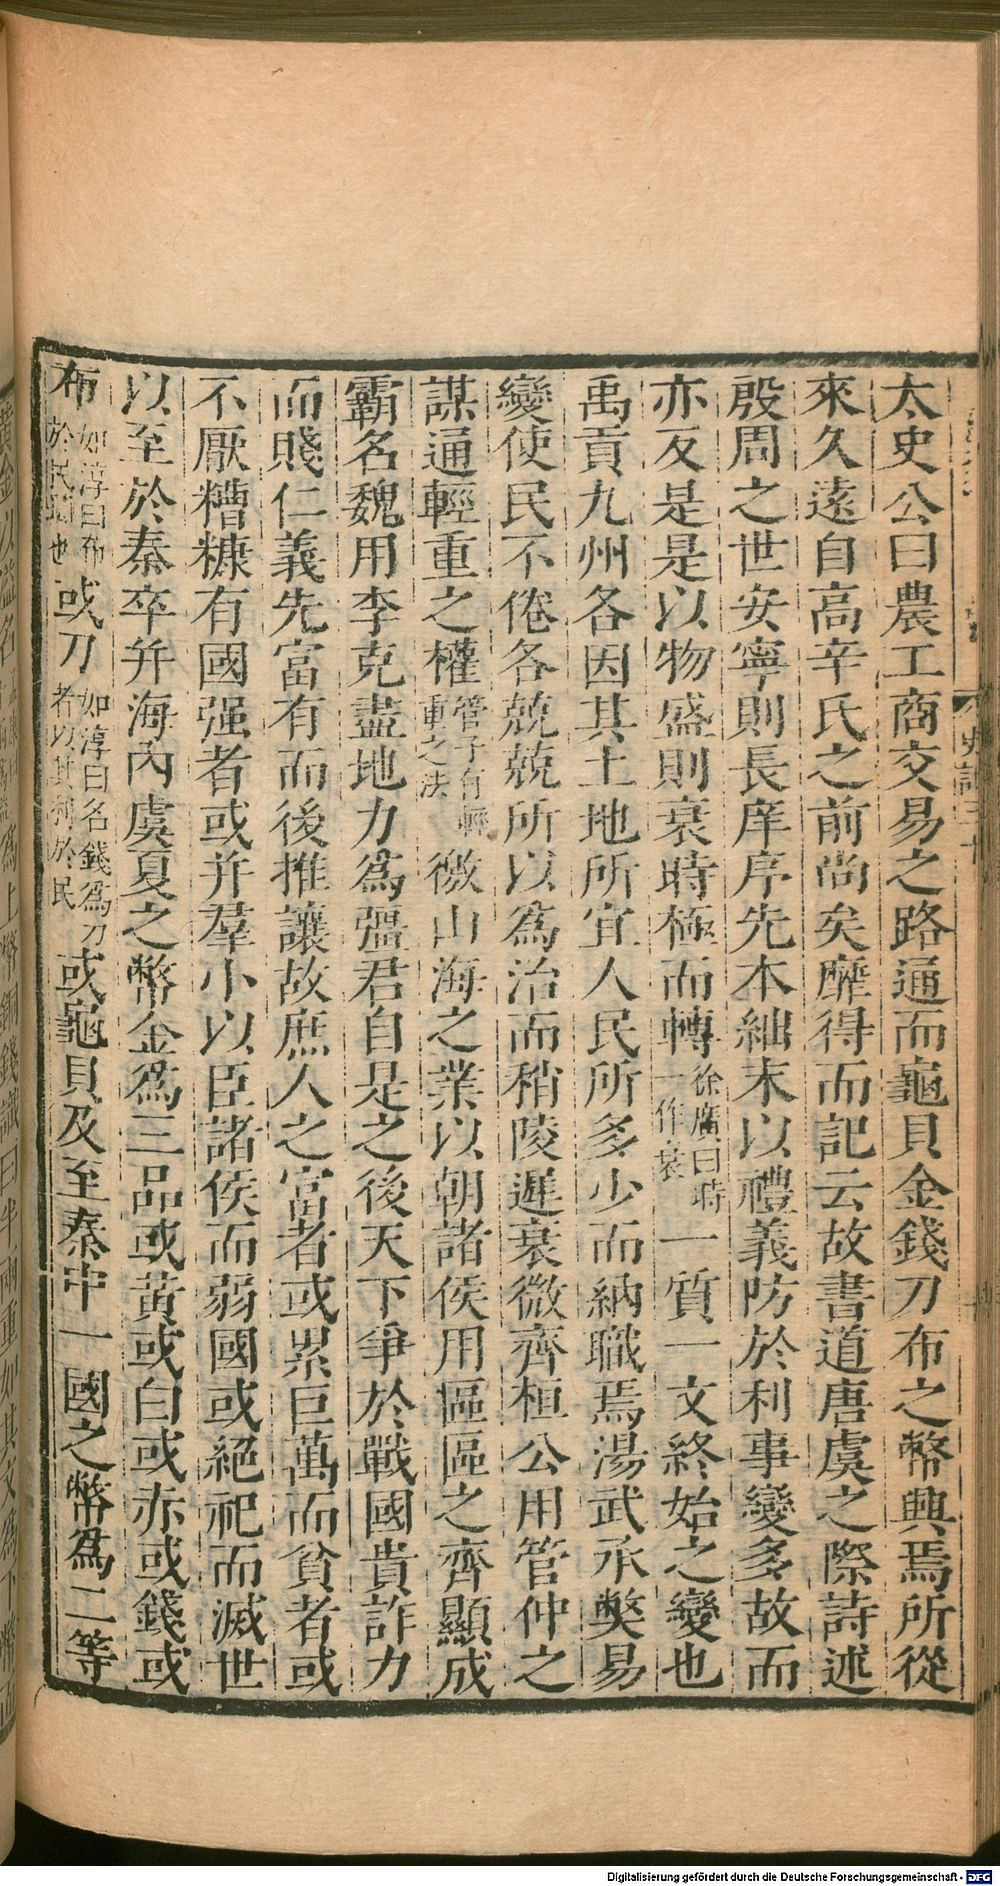 太史公曰農工商交易之路通而龜貝金錢刀布之幣興焉所從
來久遠自高辛氏之前尚矣靡得而記云故書道唐虞之際詩述
殷周之世安寧則長庠序先本絀末以禮義防於利事變多故而
亦反是是以物盛則衰時極而轉徐廣曰時一作衰一質一文終始之變也
禹貢九州各因其土地所宜人民所多少而納職焉湯武承獘易
變使民不倦各兢兢所以為治而稍陵遲衰微齊桓公用管仲之
謀通輕重之權管子有輕重之法徼山海之業以朝諸侯用區區之齊顯成
霸名魏用李克盡地力為彊君自是之後天下爭於戰國貴詐力
而賤仁義先富有而後推讓故庶人之富者或累巨萬而貧者或
不厭糟糠有國强者或并羣小以臣諸侯而弱國或絕祀而滅世
以至於秦卒并海內虞夏之幣金為三品或黃或白或赤或錢或
布如淳曰布於民間也或刀如淳曰名錢為刀者以其利於民或龜貝及至秦中一國之幣為二等
史記三十
黃金以溢名
為上幣銅錢識曰半兩重如其文為下幣
Digitalisierung gefördert durch die Deutsche Forschungsgemeinschaft - DFG